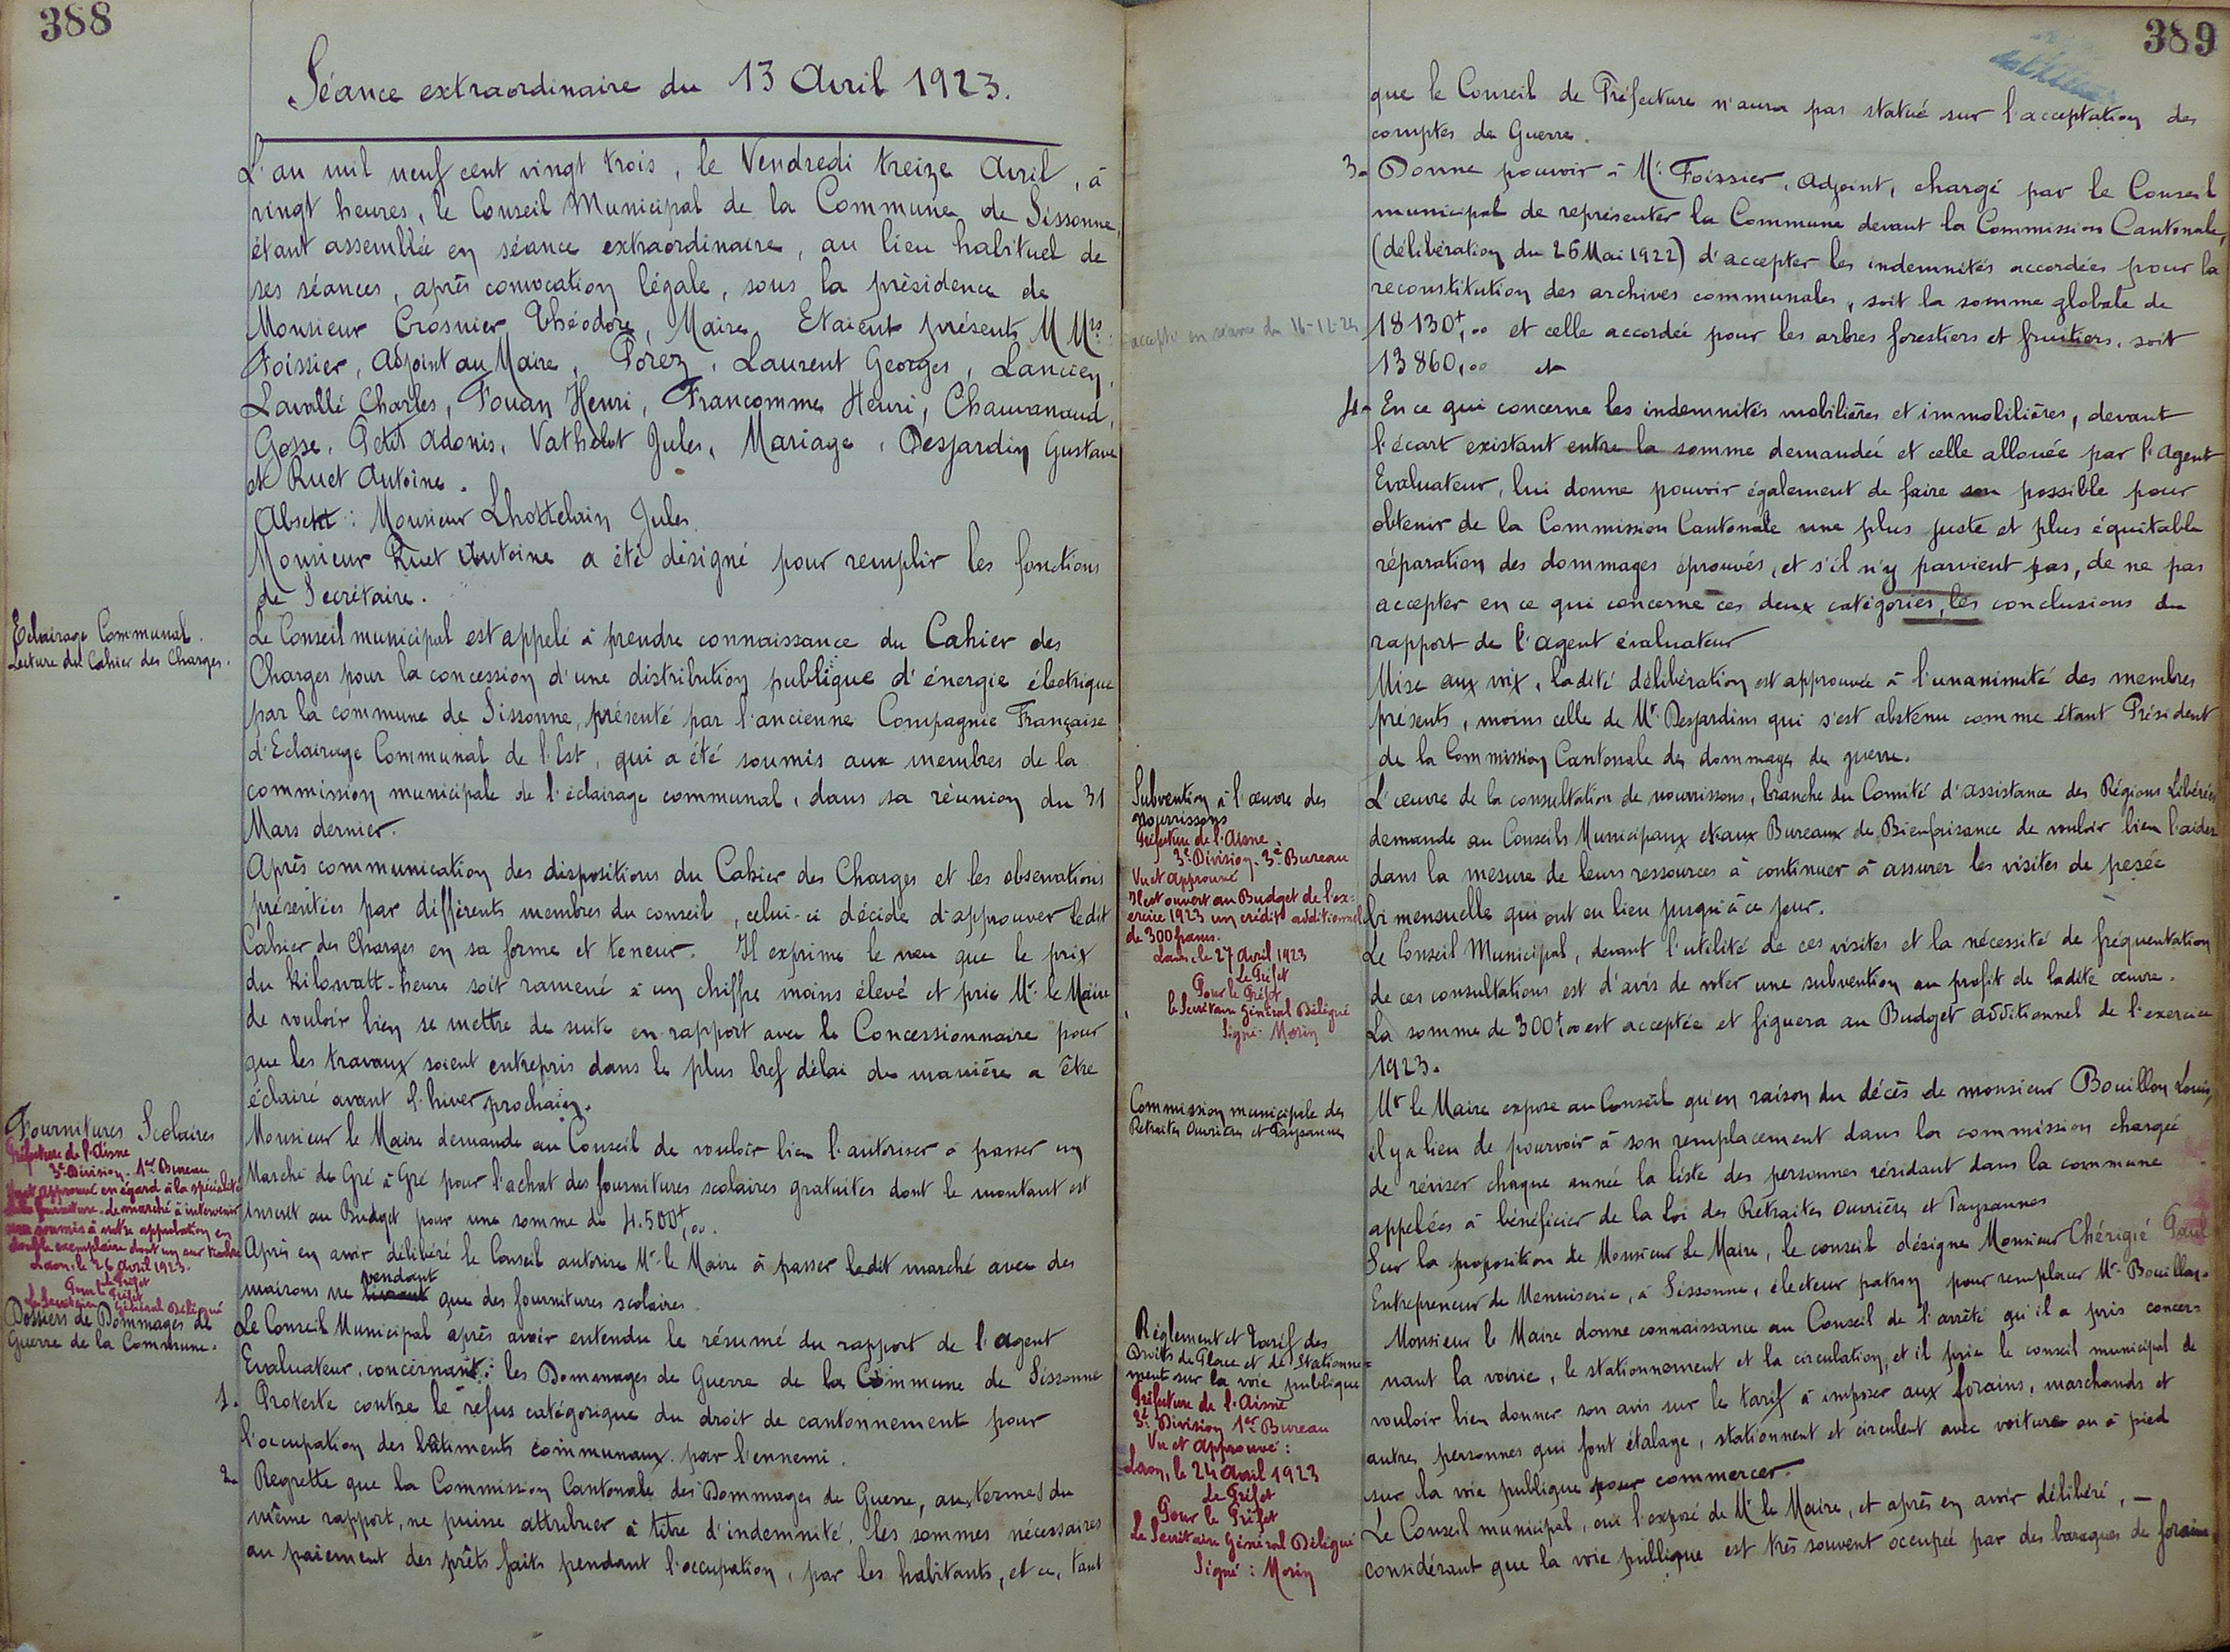 388
Séance extraordinaire du 13 Avril 1923.
L'an mil neuf cent vingt trois, le Vendredi treize Avril, à
vingt heures, le Conseil Municipal de la Commune de Sissonne,
étant assemblée en séance extraordinaire, au lieu habituel de
ses séances, après convocation légale, sous la présidence de
Monsieur Crosnier Théodore, Maire. Etaient présents M Mrs:
Foissier, Adjoint au Maire, Porez, Laurent Georges, Lancien,
Lavallé Charles, Fouan Henri, Francomme Henri, Chauvanaud,
Gosse, Petit Adonis, Vathelot Jules, Mariage, Desjardin Gustave
et Ruet Antoine.
Absent : Monsieur Lhottelain Jules
Monsieur Ruet Antoine a été désigné pour remplir les fonctions
de Secrétaire.
Eclairage Communal.
Lecture du Cahier des Charges.
Le Conseil municipal est appelé à prendre connaissance du Cahier des
Charges pour la concession d'une distribution publique d'énergie électrique
par la commune de Sissonne, présenté par l'ancienne Compagnie Française
d'Eclairage Communal de l'Est, qui a été soumis aux membres de la
commission municipale de l'éclairage communal, dans sa réunion du 31
Mars dernier.
Après communication des dispositions du Cahier des Charges et les observations
présentées par différents membres du conseil, celui-ci décide d'approuver ledit
Cahier des Charges en sa forme et teneur. Il exprime le vœu que le prix
du kilowatt-heure soit ramené à un chiffre moins élevé et prie Mr le Maire
de vouloir bien se mettre de suite en rapport avec le Concessionnaire pour
que les travaux soient entrepris dans le plus bref délai de manière a être
éclairé avant l'hiver prochain.
Fournitures Scolaires
Préfecture de l'Aisne
3e Division - 1er Bureau
Vu et approuvé en égard à la spécialité
de la fourniture. Le marché à intervenir
sera soumis à notre approbation en
double exemplaire dont un sur timbre
Laon, le 26 Avril 1923.
Le Préfet
Pour le Préfet
Le Secrétaire Général Délégué
Monsieur le Maire demande au Conseil de vouloir bien l'autoriser à passer un
Marché de Gré à Gré pour l'achat des fournitures scolaires gratuites dont le montant est
inscrit au Budget pour une somme de 4.500f,00.
Après en avoir délibéré le Conseil autorise Mr le Maire à passer ledit marché avec des
maisons ne vendant que des fournitures scolaires.
Dossiers de Dommages de
Guerre de la Commune.
Le Conseil Municipal après avoir entendu le résumé du rapport de l'Agent
Evaluateur, concernant : les Dommages de Guerre de la Commune de Sissonne
1. Proteste contre le refus catégorique du droit de cantonnement pour
l'occupation des bâtiments communaux par l'ennemi.
2. Regrette que la Commission Cantonale des Dommages de Guerre, aux termes du
même rapport, ne puisse attribuer à titre d'indemnité, les sommes nécessaires
au paiement des prêts faits pendant l'occupation, par les habitants, et ce, tant
389
que le Conseil de Préfecture n'aura pas statué sur l'acceptation des
comptes de Guerre.
3. Donne pouvoir à Mr. Foissier, Adjoint, chargé par le Conseil
municipal de représenter la Commune devant la Commission Cantonale,
(délibération du 26 Mai 1922) d'accepter les indemnités accordées pour la
reconstitution des archives communales, soit la somme globale de
accepté en séance du 16-12-24
18130f,00 et celle accordée pour les arbres forestiers et fruitiers, soit
13860,00 et
4. En ce qui concerne les indemnités mobilières et immobilières, devant
l'écart existant entre la somme demandée et celle allouée par l'Agent
Evaluateur, lui donne pouvoir également de faire son possible pour
obtenir de la Commission Cantonale une plus juste et plus équitable
réparation des dommages éprouvés, et s'il n'y parvient pas, de ne pas
accepter en ce qui concerne ces deux catégories, les conclusions du
rapport de l'Agent évaluateur
Mise aux voix, ladite délibération est approuvée à l'unanimité des membres
présents, moins celle de Mr Desjardins qui s'est abstenu comme étant Président
de la Commission Cantonale des dommages de guerre.
Subvention à l'œuvre des
nourrissons
Préfecture de l'Aisne
3e Division - 3e Bureau
Vu et approuvé
Il est ouvert au Budget de l'ex-
ercice 1923 un crédit additionnel
de 300 francs.
Laon, le 27 Avril 1923
Le Préfet
Pour le Préfet
Le Secrétaire Général Délégué
Signé: Morin
L'œuvre de la consultation de nourrissons, branche du Comité d'Assistance des Régions Libérées
demande au Conseils Municipaux et aux Bureaux de Bienfaisance de vouloir bien l'aider
dans la mesure de leurs ressources à continuer à assurer les visites de pesée
bi mensuelle qui ont eu lieu jusqu'à ce jour.
Le Conseil Municipal, devant l'utilité de ces visites et la nécessité de fréquentation
de ces consultations est d'avis de voter une subvention au profit de ladite œuvre.
La somme de 300f,00 est acceptée et figuera au Budget additionnel de l'exercice
1923.
Commission municipale des
Retraites Ouvrières et Paysannes
Mr le Maire expose au Conseil qu'en raison du décès de monsieur Bouillon Louis,
il y a lieu de pourvoir à son remplacement dans la commission chargée
de réviser chaque année la liste des personnes résidant dans la commune
appelées à bénéficier de la loi des Retraites Ouvrières et Paysannes
Sur la proposition de Monsieur le Maire, le conseil désigne Monsieur Chérigié Paul
Entrepreneur de Menuiserie, à Sissonne, électeur patron pour remplacer Mr Bouillon.
Règlement et Tarif des
Droits de Place et de Stationne=
ment sur la voie publique
Préfecture de l'Aisne
3e Division 1er Bureau
Vu et approuvé :
Laon, le 24 Avril 1923
Le Préfet
Pour le Préfet
Le Secrétaire Général Délégué
Signé : Morin
Monsieur le Maire donne connaissance au Conseil de l'arrêté qu'il a pris concer=
nant la voirie, le stationnement et la circulation, et il prie le conseil municipal de
vouloir bien donner son avis sur le tarif à imposer aux forains, marchands et
autres personnes qui font étalage, stationnent et circulent avec voiture ou à pied
sur la voie publique pour commercer.
Le Conseil municipal, oui l'exposé de Mr le Maire, et après en avoir délibéré, —
considérant que la voie publique est très souvent occupée par des baraques de forains,